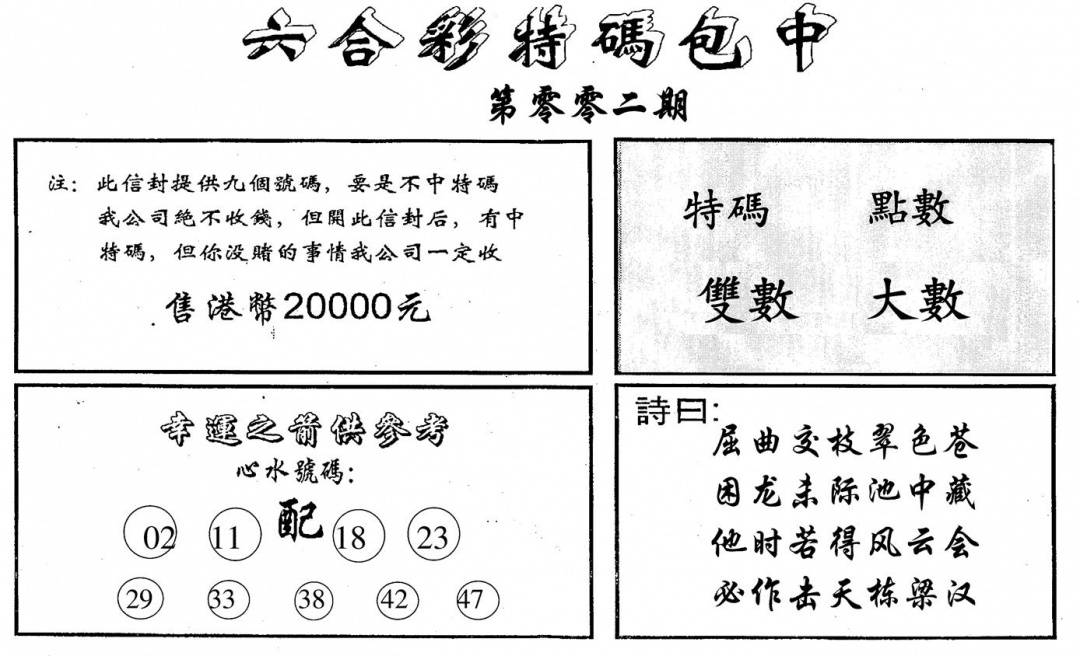 六合彩特碼包中
第零零二期
注：此信封提供九個號碼，要是不中特碼
我公司絕不收錢，但開此信封后，有中
特碼，但你没賭的事情我公司一定收
售港幣20000元
特碼 點數
雙數 大數
幸運之箭供參考
心水號碼：
02 11 配 18 23
29 33 38 42 47
詩曰：
屈曲交枝翠色苍
困龙未际池中藏
他时若得风云会
必作击天栋梁汉